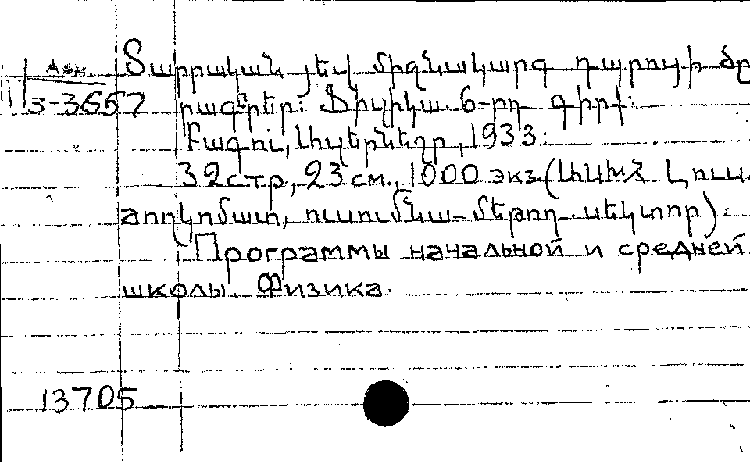 Арм.
3-3657
Տարրական յեվ միջնակարգ դպրոցի ծր
րագրեր: Ֆիզիկա 6-րդ գիրք:
Բագու, 1933:
32 стр, 23 см., 1000 экз. (ԱԽՍՀ Լուս.
ժողկոմատ, ուսումնա-մեթոդ սեկտոր):
Программы начальной и средней
школы. Физика.
13705